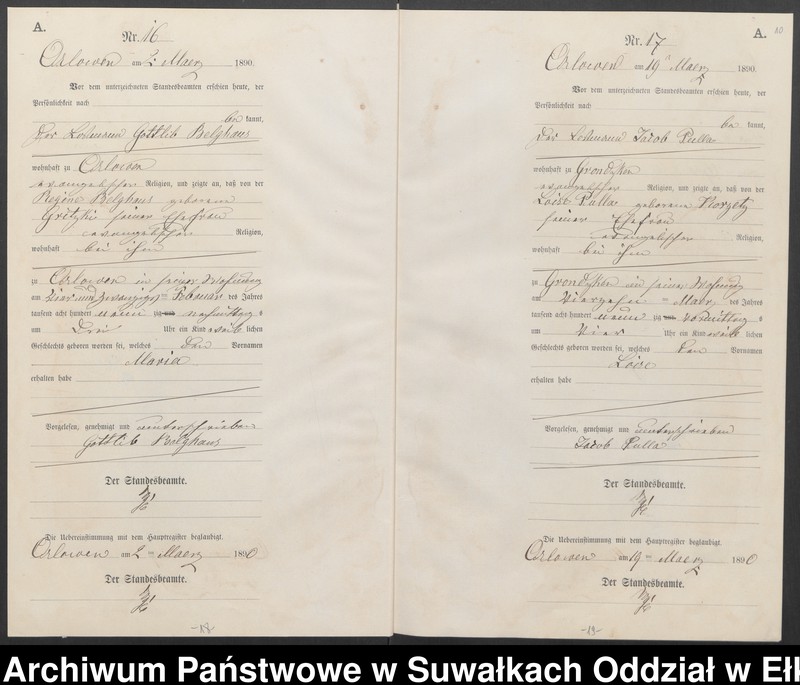 A.
Nr. 16
Orlowen am 2 Maerz 1890.
Vor dem unterzeichneten Standesbeamten erschien heute, der
Persönlichkeit nach
be kannt,
Der Losmann Gottlieb Belghaus
wohnhaft zu Orlowen
evangelischer Religion, und zeigte an, daß von der
Regine Belghaus geborenen
Gritzki seiner Ehefrau
evangelischer Religion,
wohnhaft bei ihm
zu Orlowen in seiner Wohnung
am Vier und zwanzigsten Februar des Jahres
tausend acht hundert neunzig nachmittag s
um Drei Uhr ein Kind weib lichen
Geschlechts geboren worden sei, welches den Vornamen
Maria
erhalten habe
Vorgelesen, genehmigt und unterschrieben
Gottlieb Belghaus
Der Standesbeamte.
Die Uebereinstimmung mit dem Hauptregister beglaubigt.
Orlowen am 2 ten Maerz 1890
Der Standesbeamte.
-18-
A.
10
Nr. 17
Orlowen am 19 Maerz 1890.
Vor dem unterzeichneten Standesbeamten erschien heute, der
Persönlichkeit nach
be kannt,
Der Losmann Jacob Pulla
wohnhaft zu Grondzken
evangelischer Religion, und zeigte an, daß von der
Loise Pulla geborenen Norzetz
seiner Ehefrau
evangelischer Religion,
wohnhaft bei ihm
zu Grondzken in seiner Wohnung
am Vierzehn ten Maerz des Jahres
tausend acht hundert neunzig vormittag s
um Vier Uhr ein Kind weib lichen
Geschlechts geboren worden sei, welches den Vornamen
Loise
erhalten habe
Vorgelesen, genehmigt und unterschrieben
Jacob Pulla
Der Standesbeamte.
Die Uebereinstimmung mit dem Hauptregister beglaubigt.
Orlowen am 19 ten Maerz 1890
Der Standesbeamte.
-19-
Archiwum Państwowe w Suwałkach Oddział w Ełk